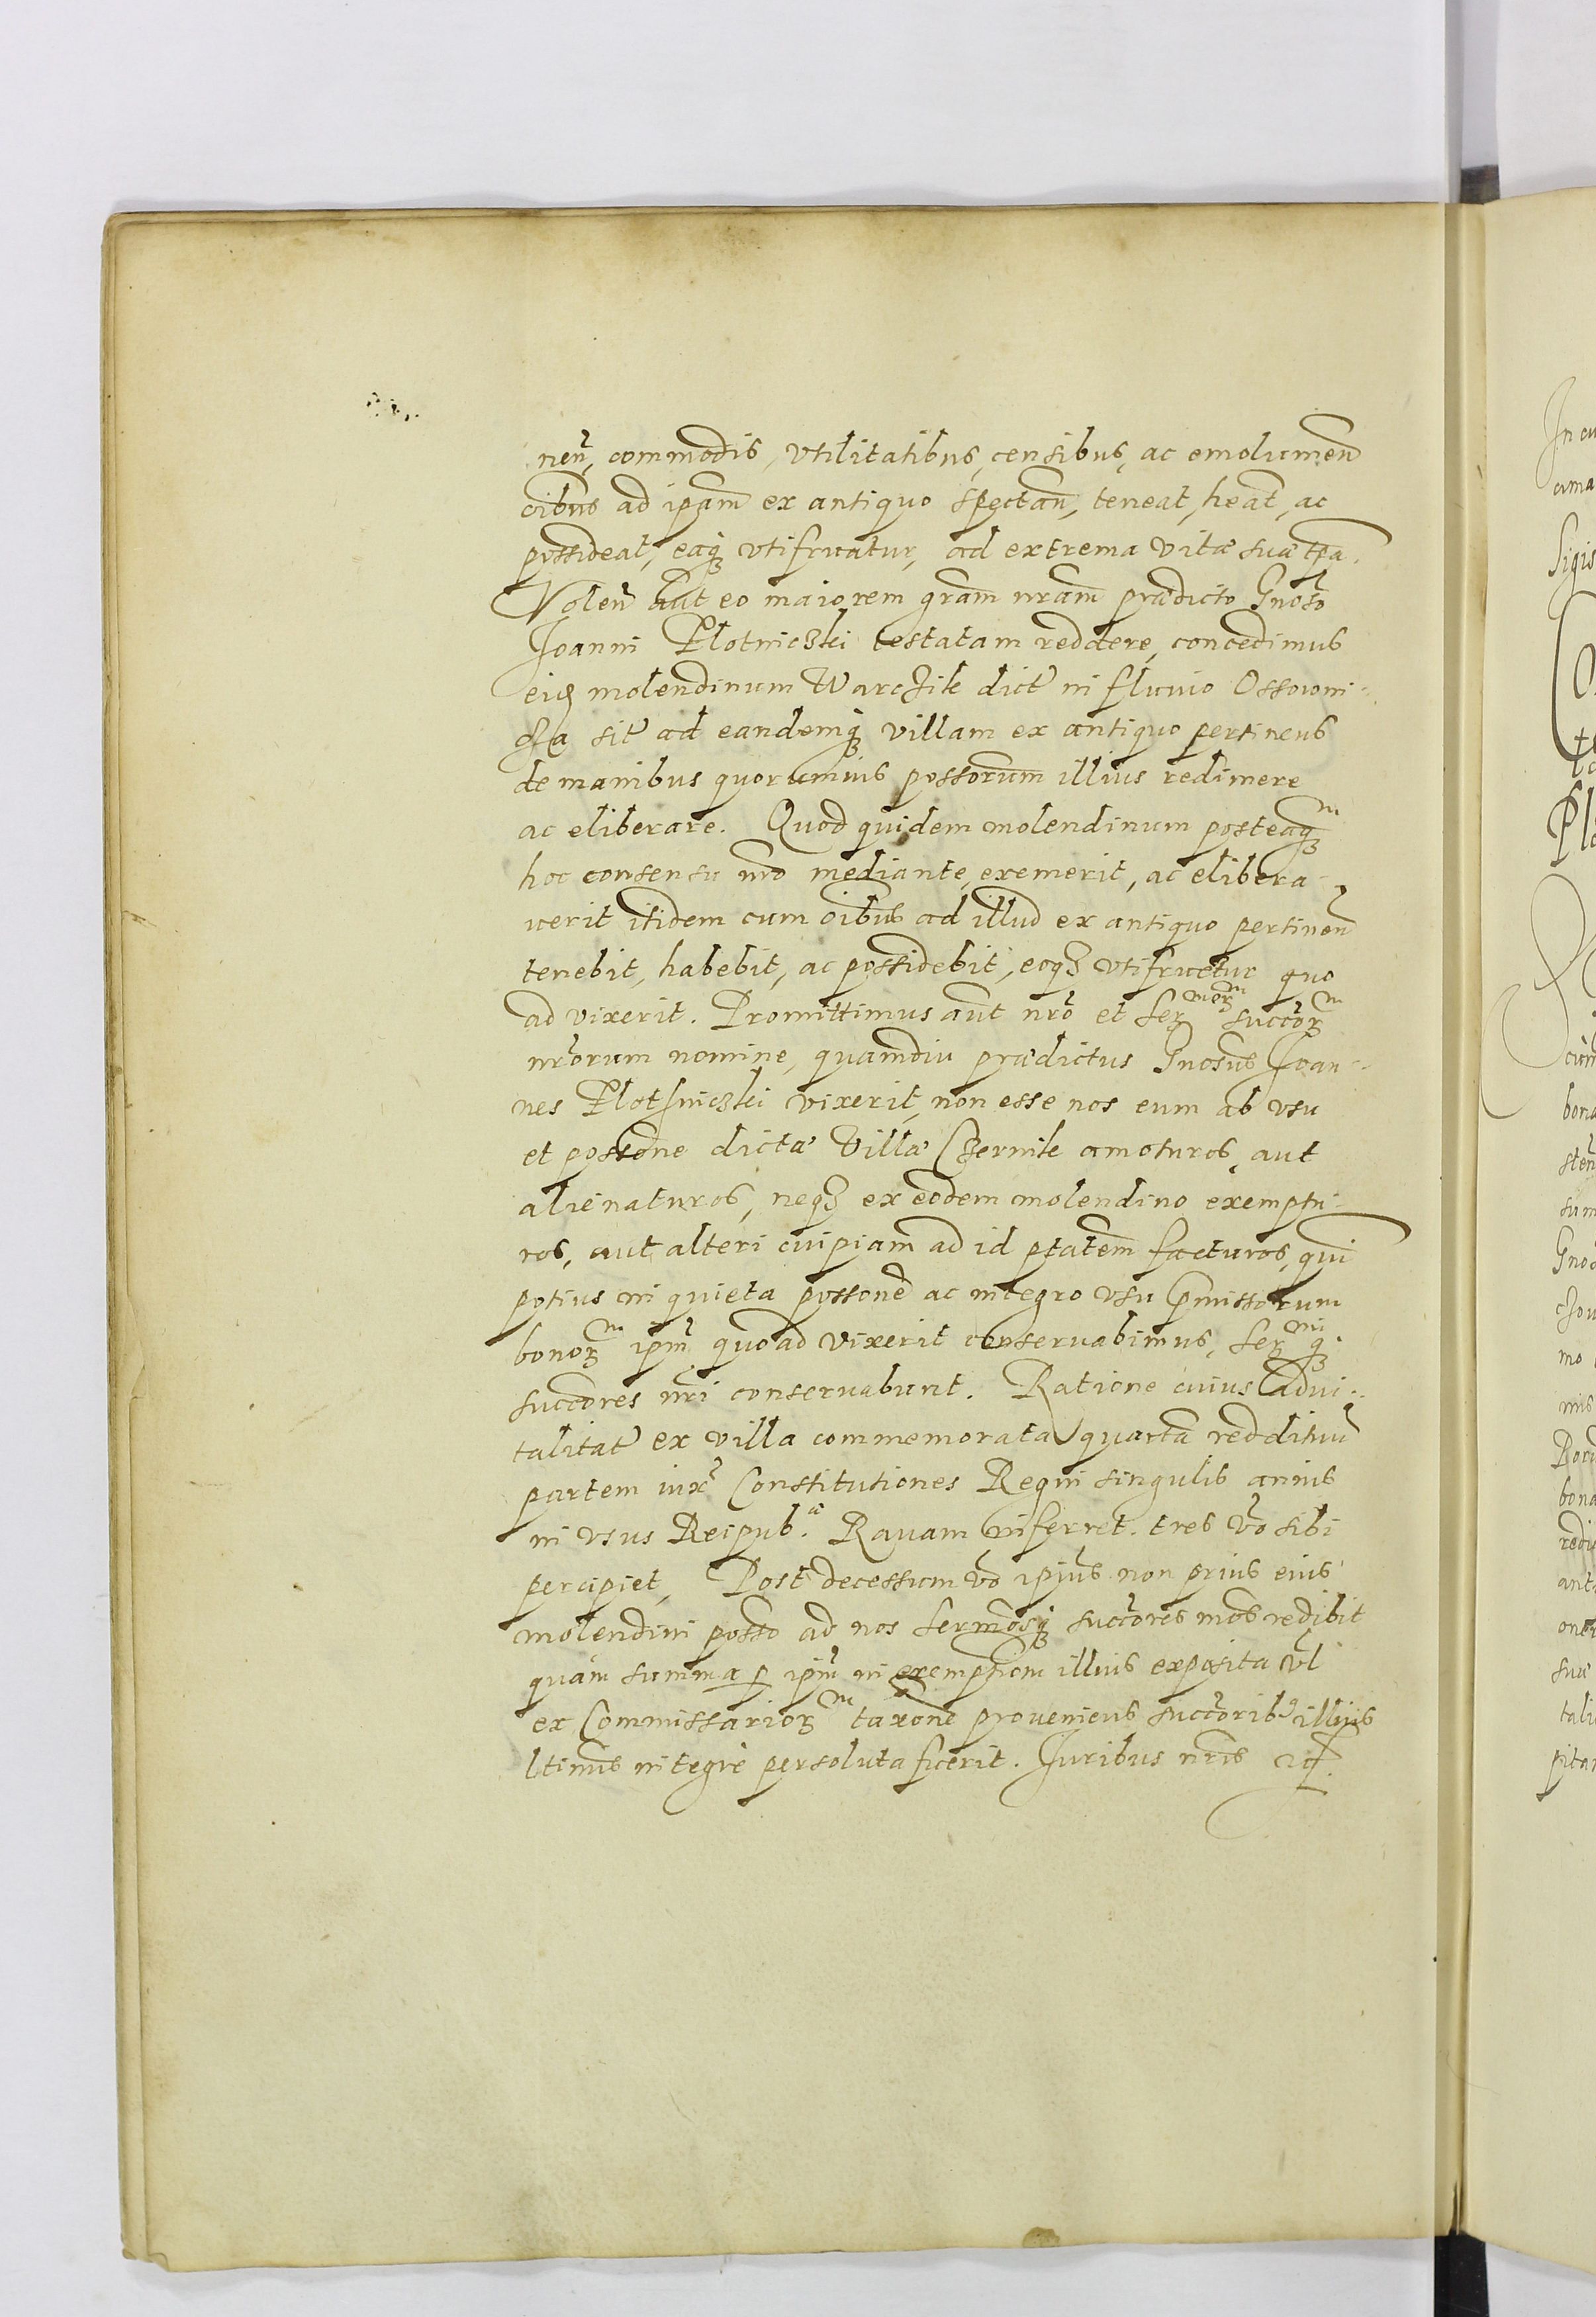 nen̄, commodis, vtilitatibus, censibus, ac emolumen̄
oībus ad ipsam ex antiquo spectan̄, teneat, heāt, ac
possideat, eaqꝫ vtifruatur, ad extrema vitæ suæ tp̄a.
Volen̄ aūt eo maiorem grām nrām prædicto Gnōso
Joanni Plotniczki testatam reddere, concedimus
eiꝗ molendinum Warchile dict̄ in fluuio Ossowni-
cza sit̄ ad eandemqꝫ villam ex antiquo pertinens
de manibus quorumuis possorum illius redimere
ac eliberare. Quod quidem molendinum posteaqꝫᵐ
hoc consensu nrō mediante, exemerit, ac elibera-
uerit itidem cum oībus ad illud ex antiquo pertinen̄
tenebit, habebit, ac possidebit, eoqꝫ vtifruetur quo
ad vixerit. Promittimus aūt nrō et Serᵐᵒʳᵐ succorᵐ
nrōrum nomine, quamdiu prædictus Gnōsus Joan-
nes Plothniczki vixerit, non esse nos eum ab vsu
et possōne dictæ Villæ Czernile amoturos, aut
alienaturos, neqꝫ ex eodem molendino exemptu-
ros, aut alteri cuipiam ad id ptātem facturos, quin
potius in quieta possonē ac integro vsu p̄missorum
bonorᵐ ipm̄ quoad vixerit conseruabimus, Serᵐⁱqꝫ
succōres nrī conseruabunt. Ratione cuius Adui-
talitat̄ ex villa commemorata quartā reddituū
partem iux̄ Constitutiones Regni singulis annis
in vsus Reipub.æ Rauam inferret. tres vō sibi
percipiet, Post decessum vō ipius non prius eius
molendini possō ad nos Sermōsqꝫ succōres nrōs redibit
quàm summa ꝑ ipm̄ in exemptiōm illius exposita vl̄
ex Commissariorᵐ taxōne proueniens succōribꝰ illius
ltimis integrè persoluta fuerit. Juribus nrīs etc.